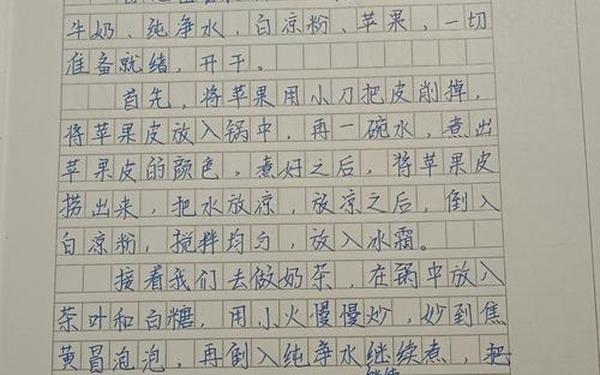 牛奶、纯净水、白凉粉、苹果,一切
准备就绪,开干。
首先,将苹果用小刀把皮削掉,
将苹果皮放入锅中,再一碗水,煮出
苹果皮的颜色,煮好之后,将苹果皮
捞出来,把水放凉,放凉之后,倒入
白凉粉,搅拌均匀,放入冰霜。
接着我们去做奶茶,在锅中放入
茶叶和白糖,用小火慢慢炒,妙到焦
黄冒泡泡,再倒入纯净水继续煮,把